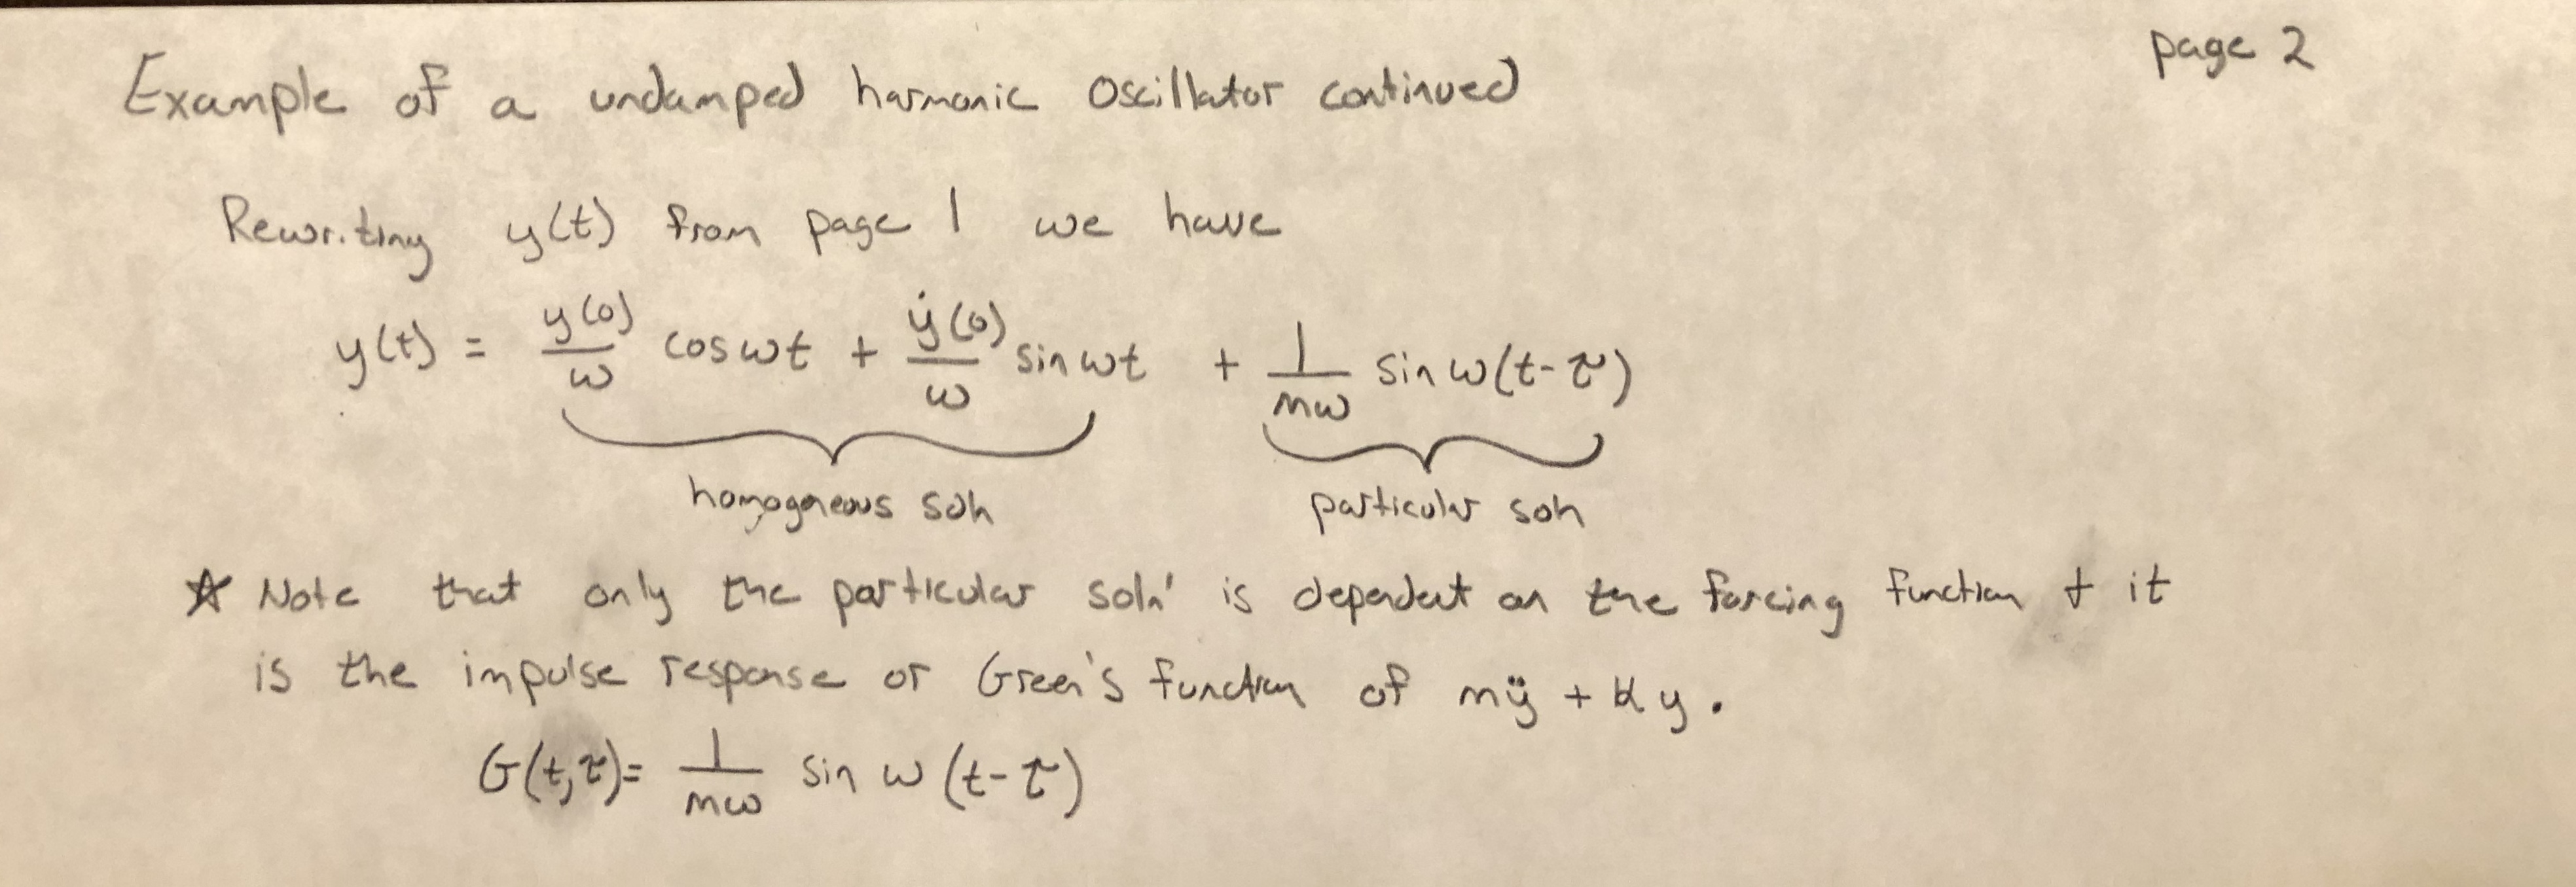 page 2
Example of a undamped harmonic Oscillator continued
Rewriting y(t) from page 1 we have
y(t) = y(0)/ω cos ωt + ẏ(0)/ω sin ωt + 1/mω sin ω(t-τ)
homogeneous soln particular soln
☆ Note that only the particular soln' is dependent on the forcing function + it
is the impulse response or Green's function of mÿ + ky.
G(t,τ)= 1/mω sin ω (t-τ)